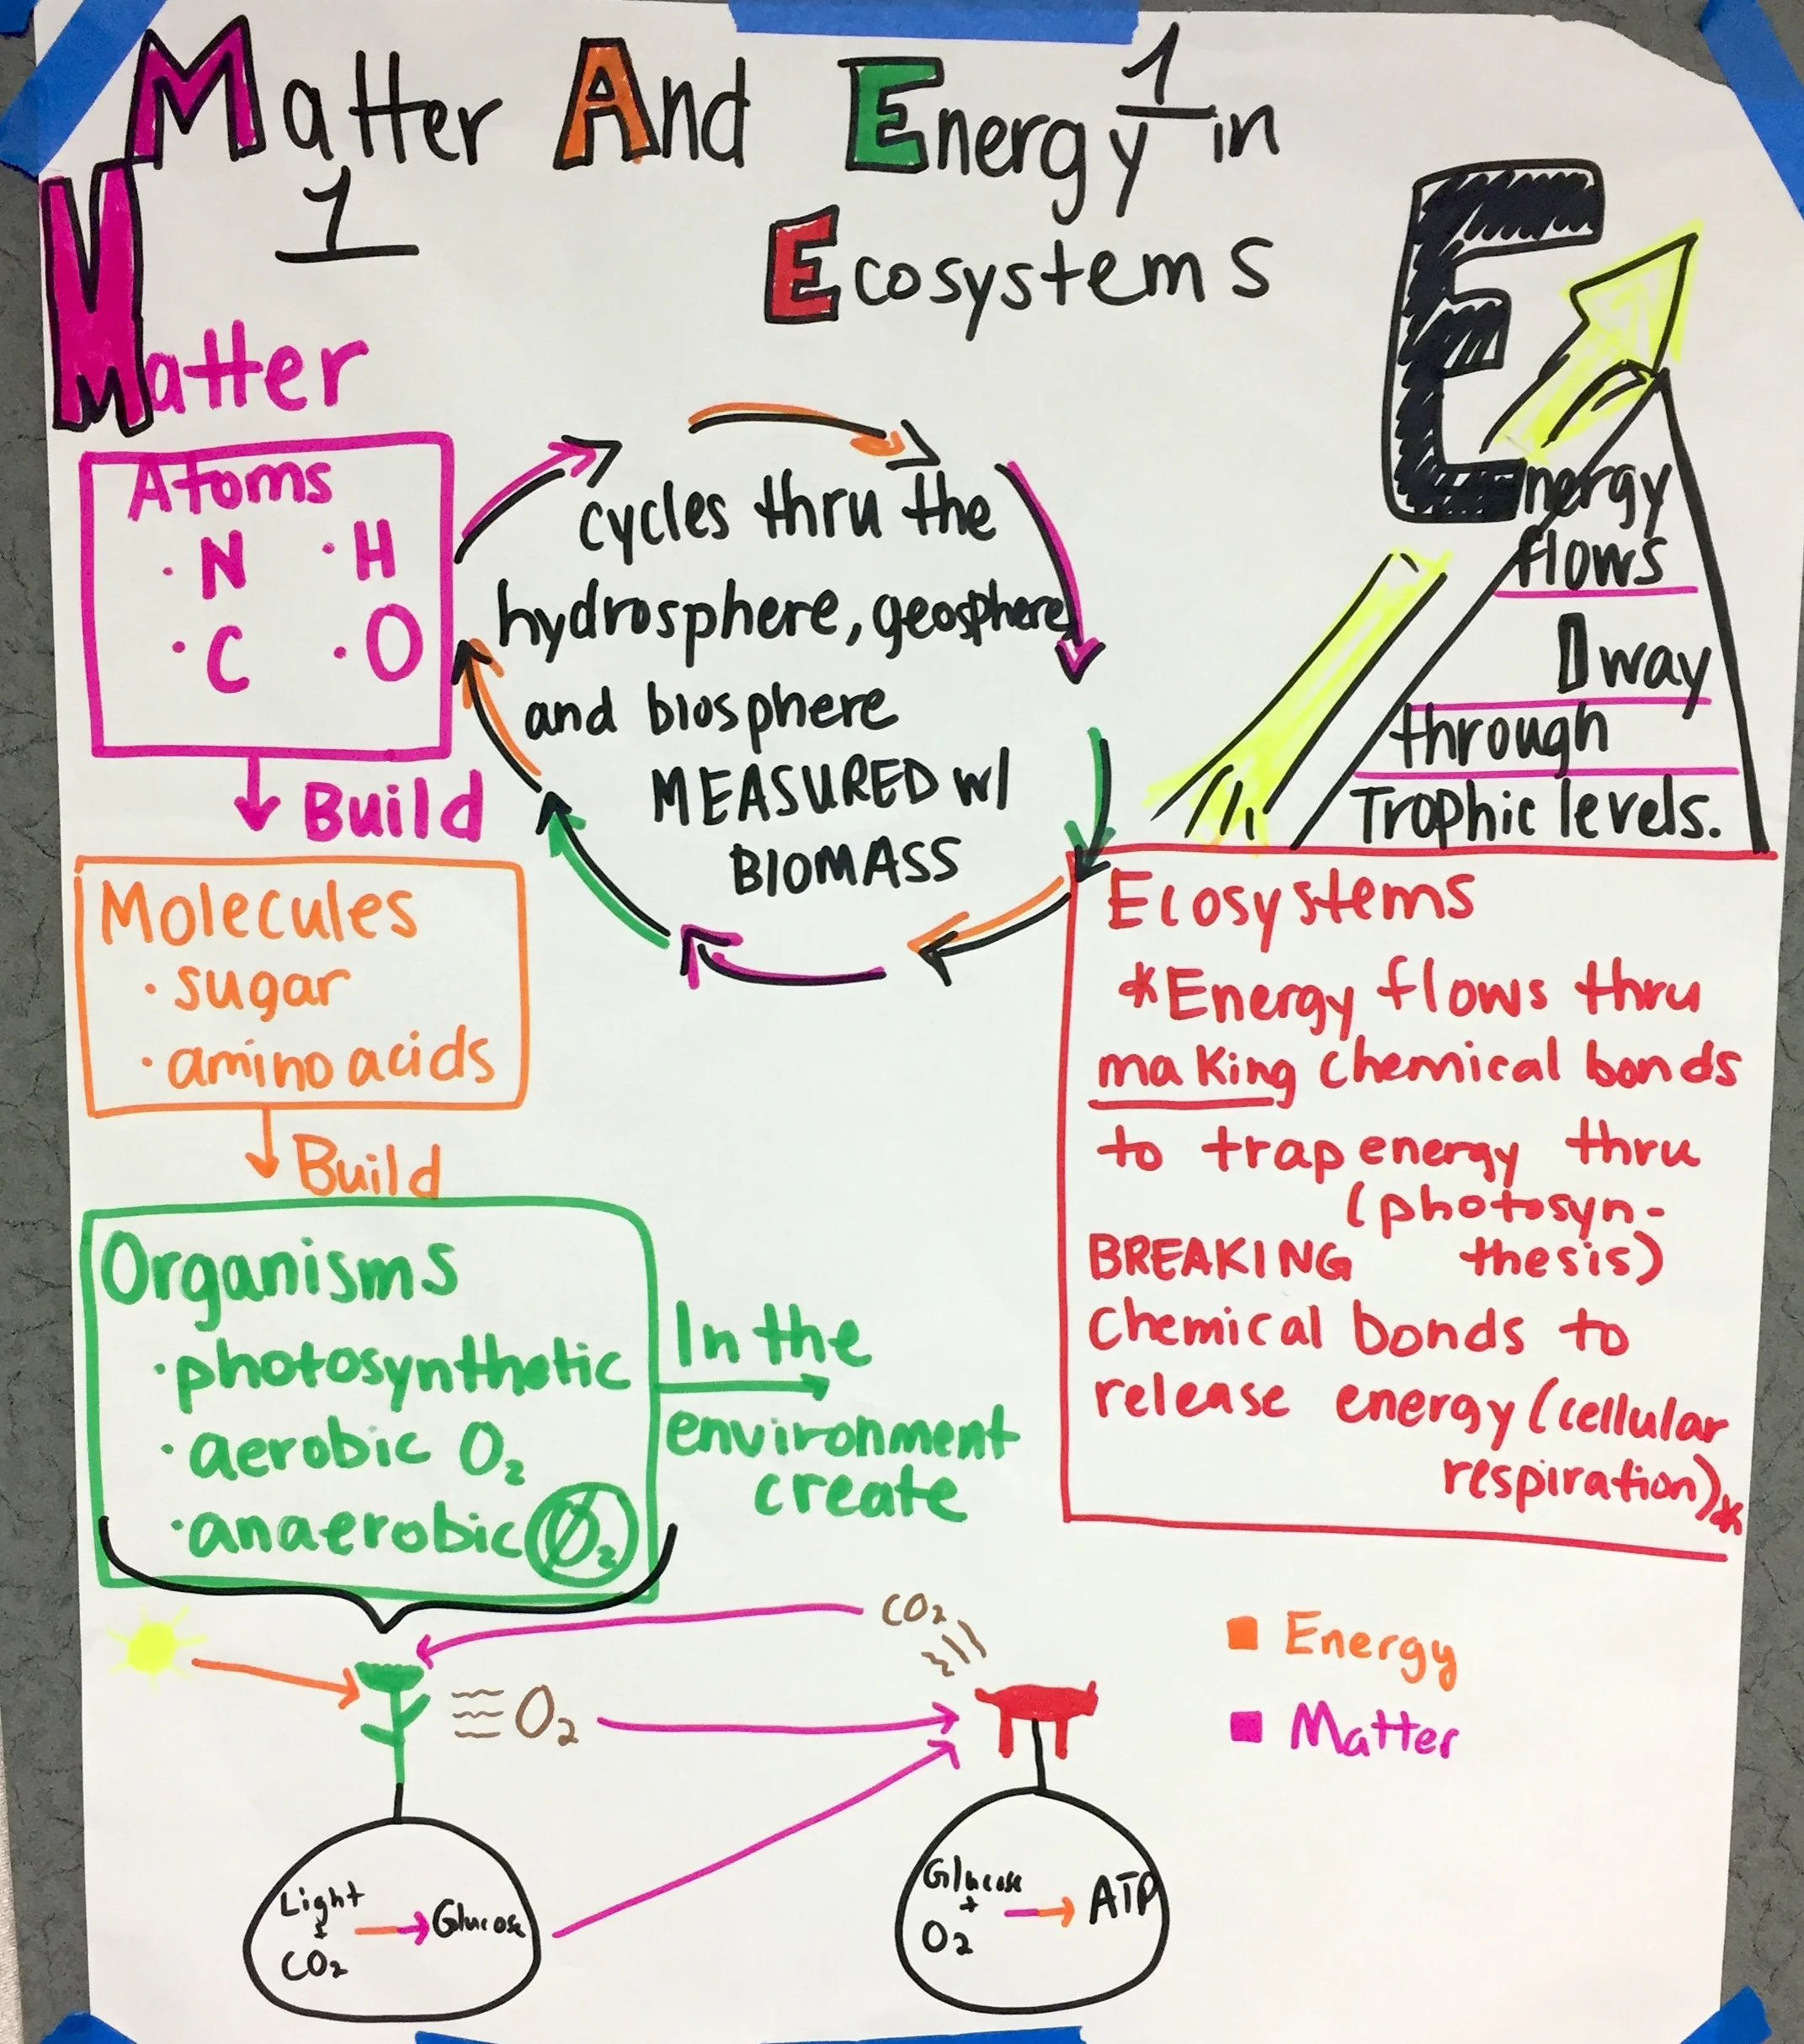 Matter And Energy in
1
1
Ecosystems
Matter
Atoms
· N · H
· C · O
Build
Molecules
· sugar
· amino acids
Build
Organisms
· photosynthetic
· aerobic O₂
· anaerobic O₂
In the
environment
create
cycles thru the
hydrosphere, geosphere
and biosphere
MEASURED w/
BIOMASS
Energy
flows
1 way
through
Trophic levels.
Ecosystems
*Energy flows thru
making chemical bonds
to trap energy thru
(photosyn-
thesis)
BREAKING
Chemical bonds to
release energy (cellular
respiration)*
CO₂
O₂
Light
+
CO₂
Glucose
Glucose
+
O₂
ATP
Energy
Matter